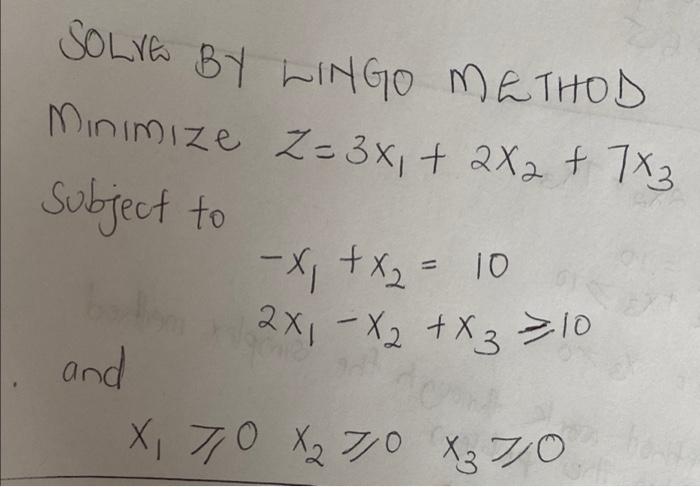 SOLVE BY LINGO METHOD
Minimize Z = 3x₁ + 2x₂ + 7x₃
Subject to
-x₁ + x₂ = 10
2x₁ - x₂ + x₃ ⩾ 10
and
x₁ ⩾ 0 x₂ ⩾ 0 x₃ ⩾ 0